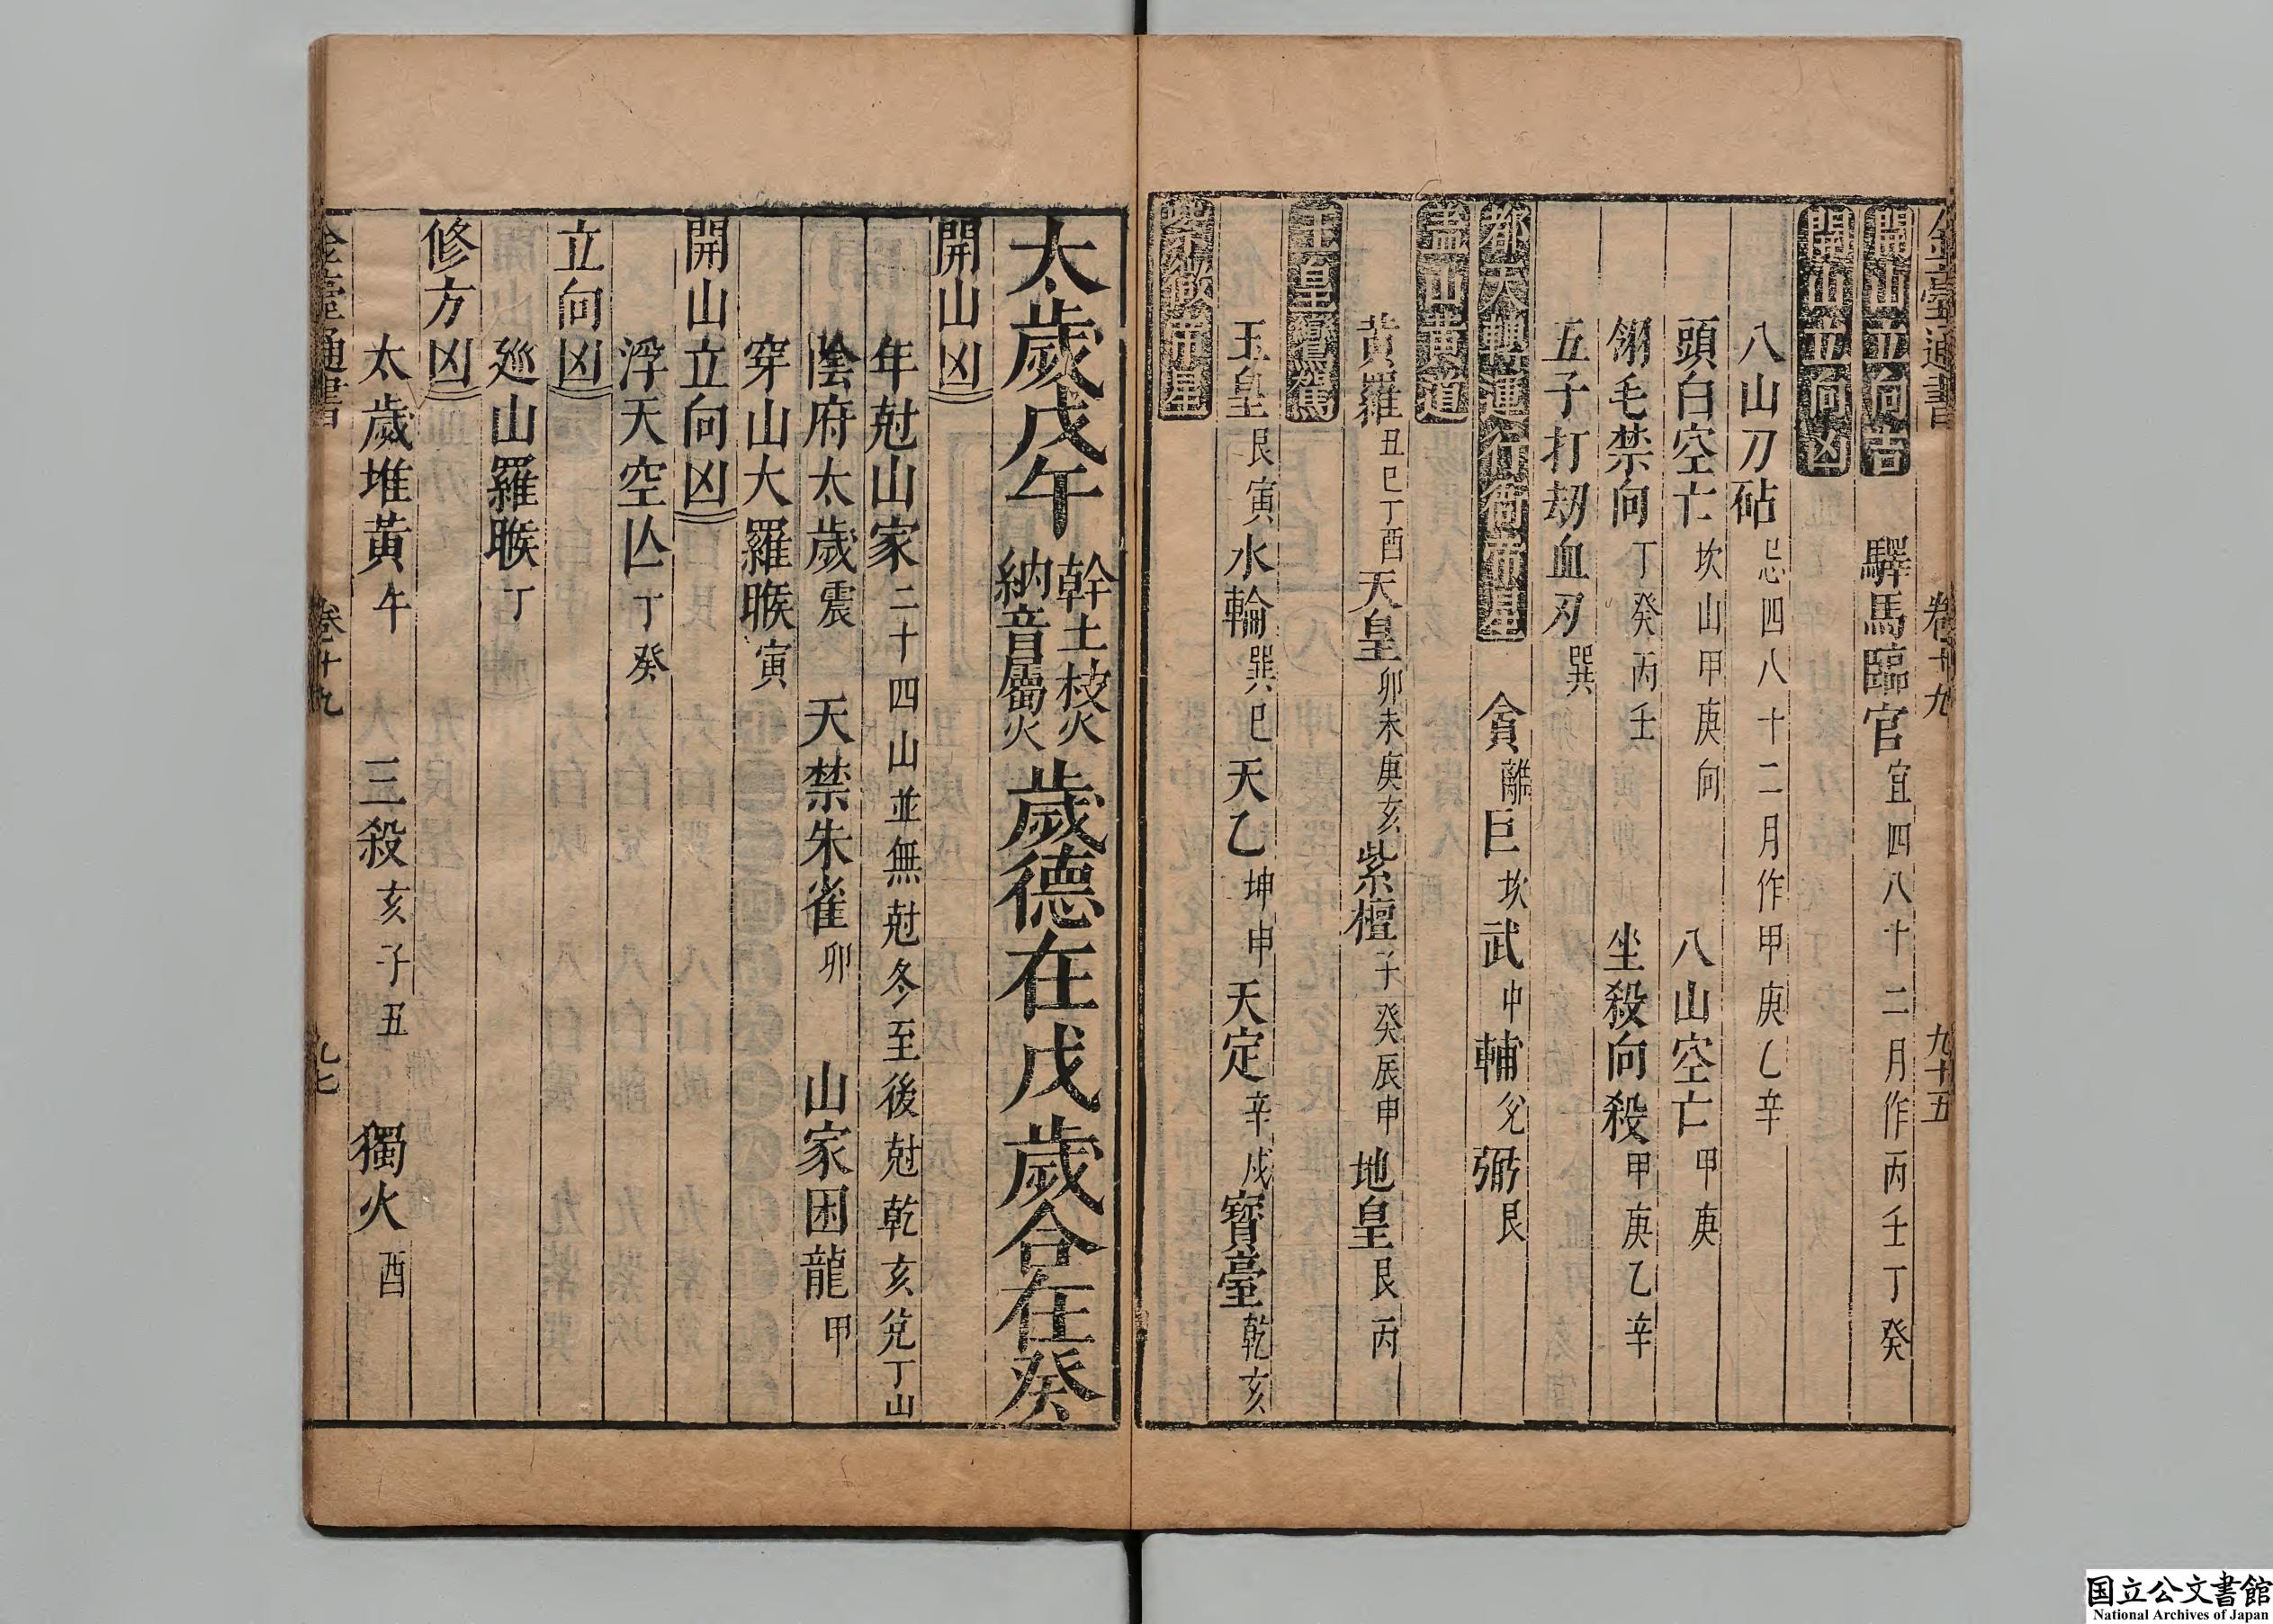 全臺通書 卷十九 九十五
開山立向吉 驛馬臨官 宜四八十二月作丙壬丁癸
開山立向凶
八山刀砧 忌四八十二月作甲庚乙辛
頭白空亡 坎山甲庚向 八山空亡 甲庚
翎毛禁向 丁癸丙壬 坐殺向殺 甲庚乙辛
五子打劫血刃 巽
都天轉運行衙帝星 貪離巨坎武中輔兌弼艮
蓋山黃道
黃羅丑巳丁酉天皇卯未庚亥紫檀子癸辰申地皇艮丙
玉皇鑾駕
玉皇艮寅水輪巽巳天乙坤申天定辛戌寶臺乾亥
紫微帝星
太歲戊午 幹土枝火 納音屬火 歲德在戊 歲合在癸
開山凶
年尅山家 二十四山並無尅冬至後尅乾亥兌丁山
陰府太歲震 天禁朱雀卯 山家困龍甲
穿山大羅睺寅
開山立向凶
浮天空亾丁癸
立向凶
廵山羅睺丁
修方凶
太歲堆黃午 三殺亥子丑 獨火酉
全臺通書 卷十九 九七